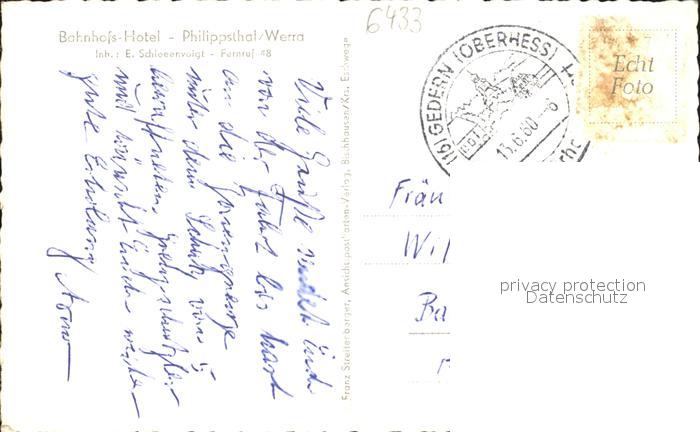 Bahnhofs-Hotel - Philippsthal/Werra
Inh.: E. Schleenvoigt - Fernruf 48
6433
(16) GEDERN (OBERHESS)
13.6.60 - 8
Echt
Foto
Viele Grüße sendet Euch
von der Fahrt bis hart
an die Zonengrenze
unter dem Schutz von
bewaffneten
und wünscht Euch weiter
gute Erholung
Franz Streitenberger, Ansichtspostkarten-Verlag, Buchhausen/Krs. Eschwege
Fräu
Wil
Ba
privacy protection
Datenschutz